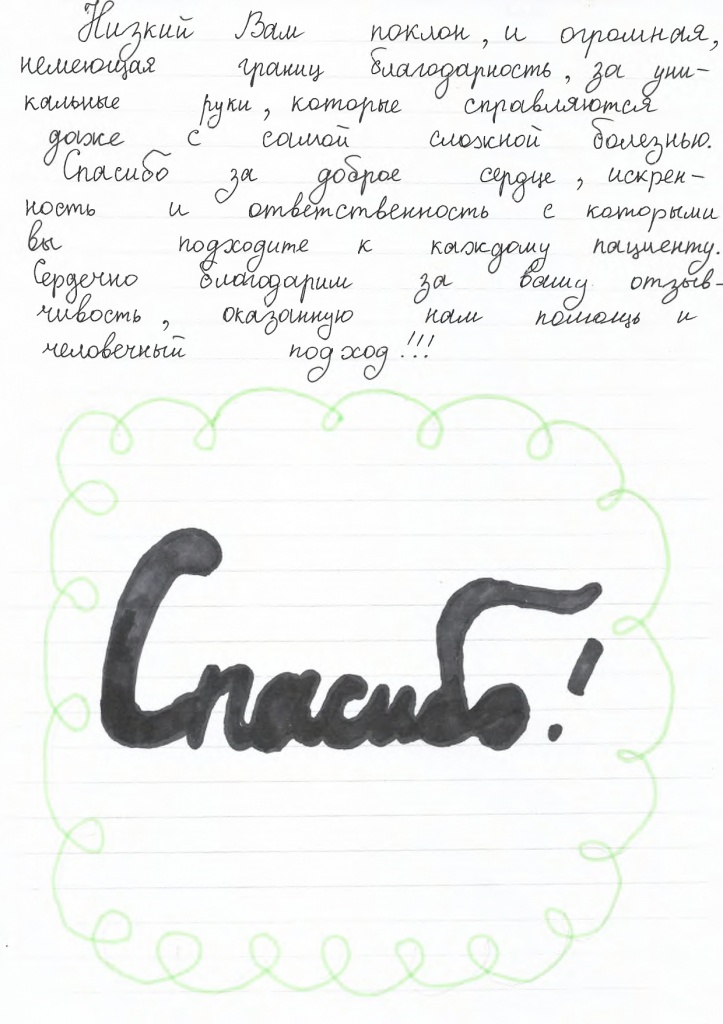 Низкий Вам поклон, и огромная,
немеющая границ благодарность, за уни-
кальные руки, которые справляются
даже с самой сложной болезнью.
Спасибо за доброе сердце, искрен-
ность и ответственность с которыми
вы подходите к каждому пациенту.
Сердечно благодарим за вашу отзыв-
чивость, оказанную нам помощь и
человечный подход!!!
Спасибо!